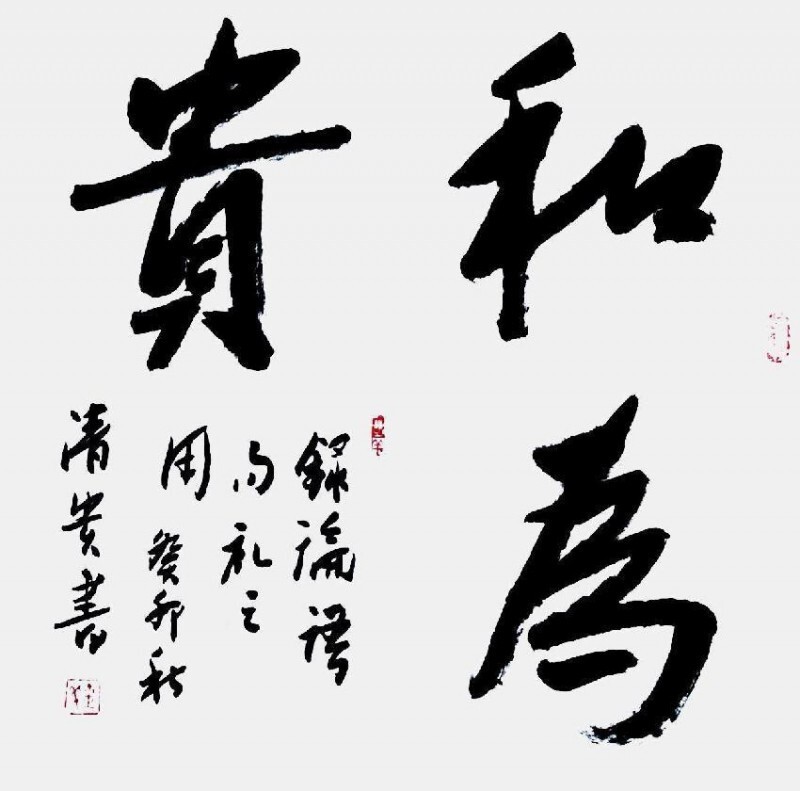 和為
貴
錄論語
句礼之
用癸卯秋
清贵書